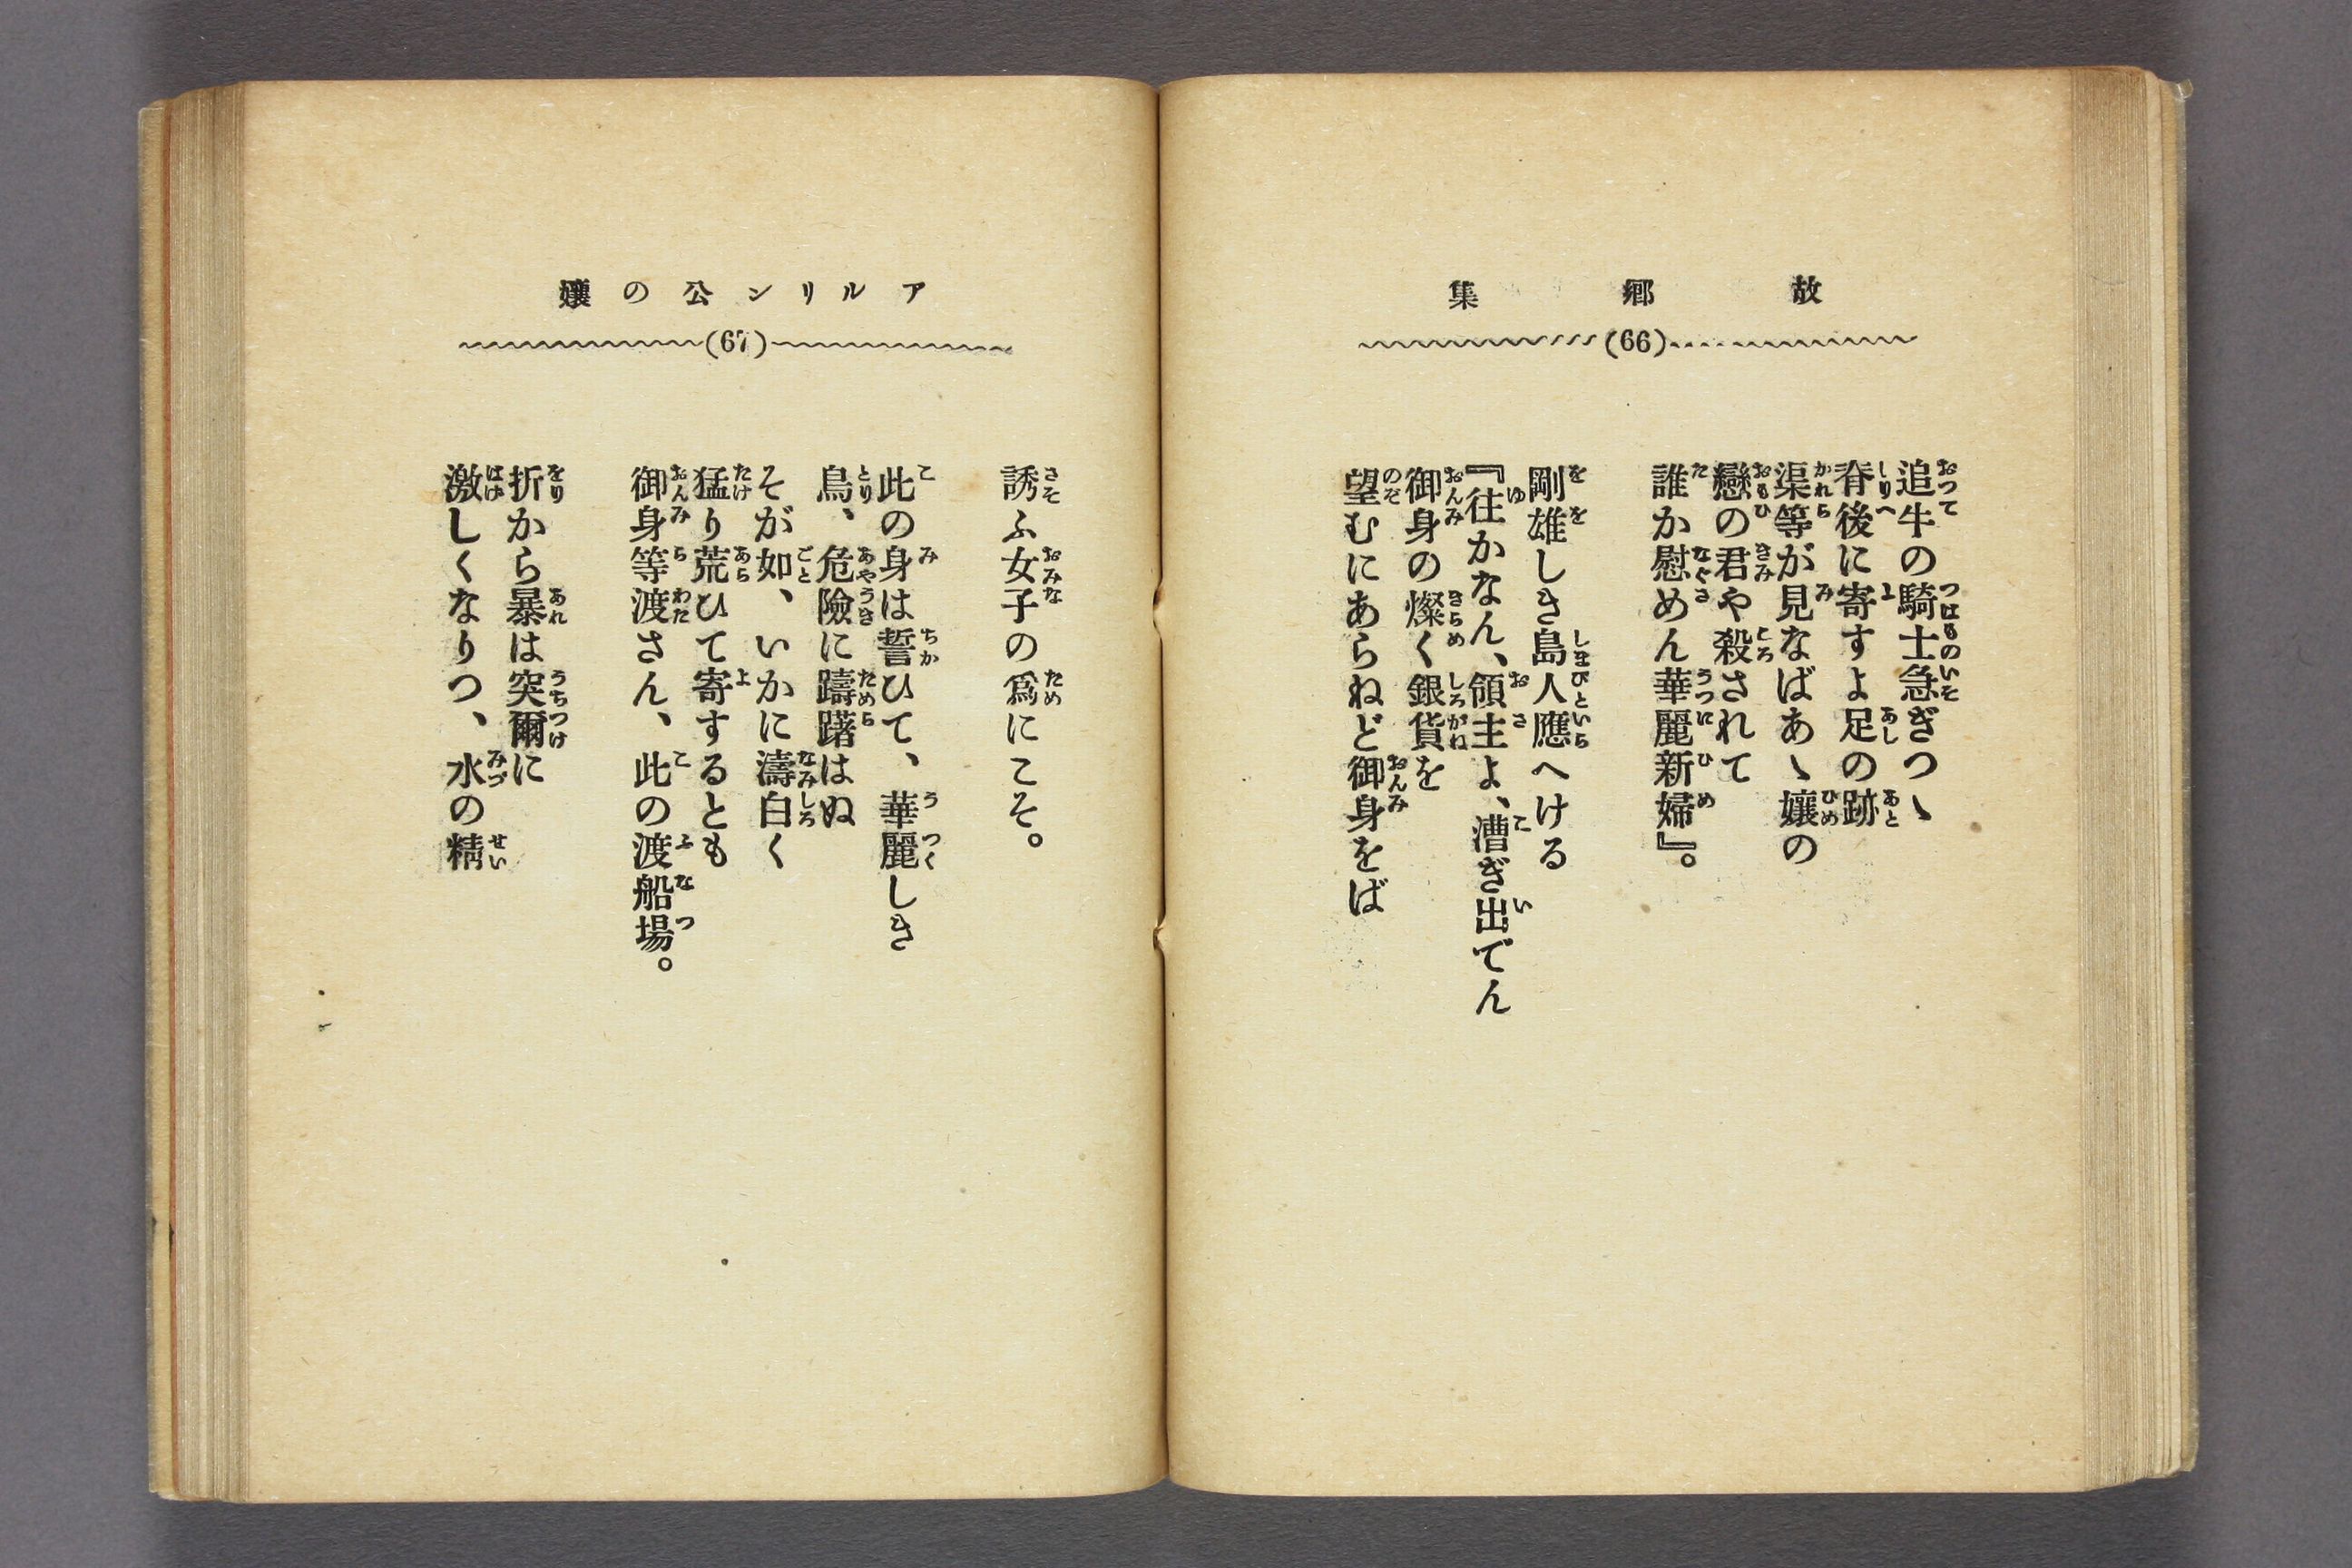 故郷集
(66)
追牛の騎士急ぎつゝ
脊後に寄すよ足の跡
渠等が見なばあゝ孃の
戀の君や殺されて
誰か慰めん華麗新婦』。
剛雄しき島人應へける
『往かなん、領主よ、漕ぎ出でん
御身の燦く銀貨を
望むにあらねど御身をば
アルリン公の孃
(67)
誘ふ女子の爲にこそ。
此の身は誓ひて、華麗しき
鳥、危險に躊躇はぬ
そが如、いかに濤白く
猛り荒ひて寄するとも
御身等渡さん、此の渡船場。
折から暴は突爾に
激しくなりつ、水の精